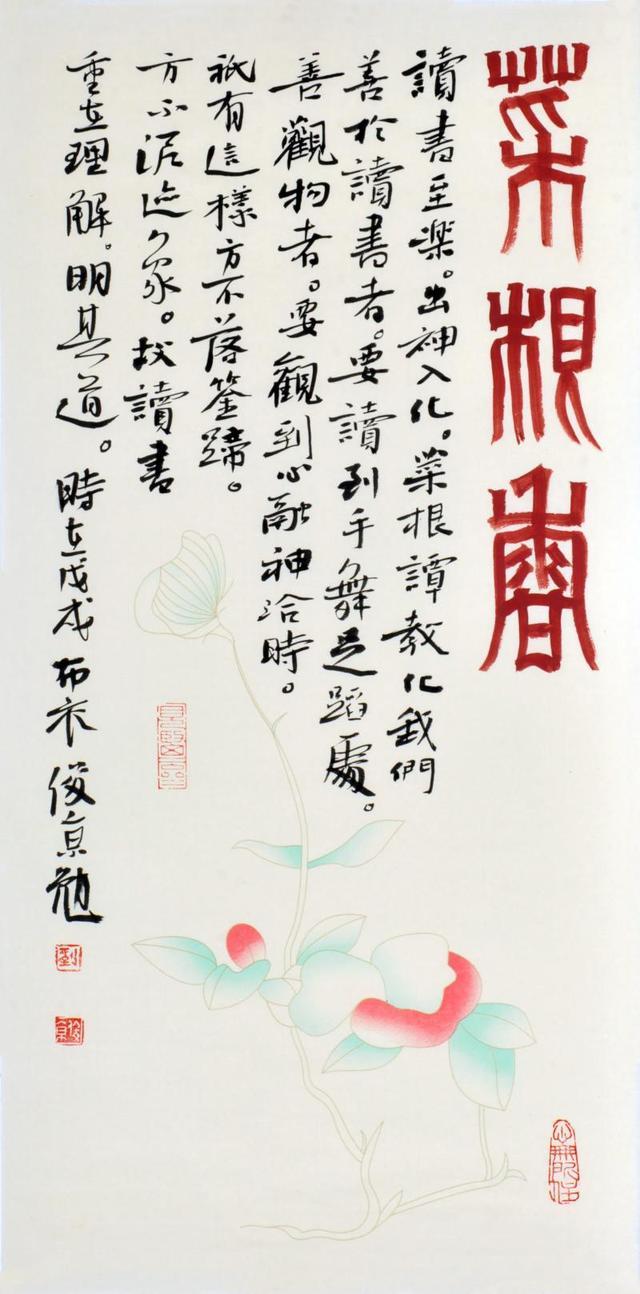 菜根香
讀書至楽。出神入化。菜根譚教化我們
善於讀書者。要讀到手舞足蹈處。
善觀物者。要觀到心融神洽時。
祇有這樣方不落筌蹄。
方不泥迹象。故讀書
重在理解。明其道。時在戊戌布衣俊京勉
劉
俊京
心無所住